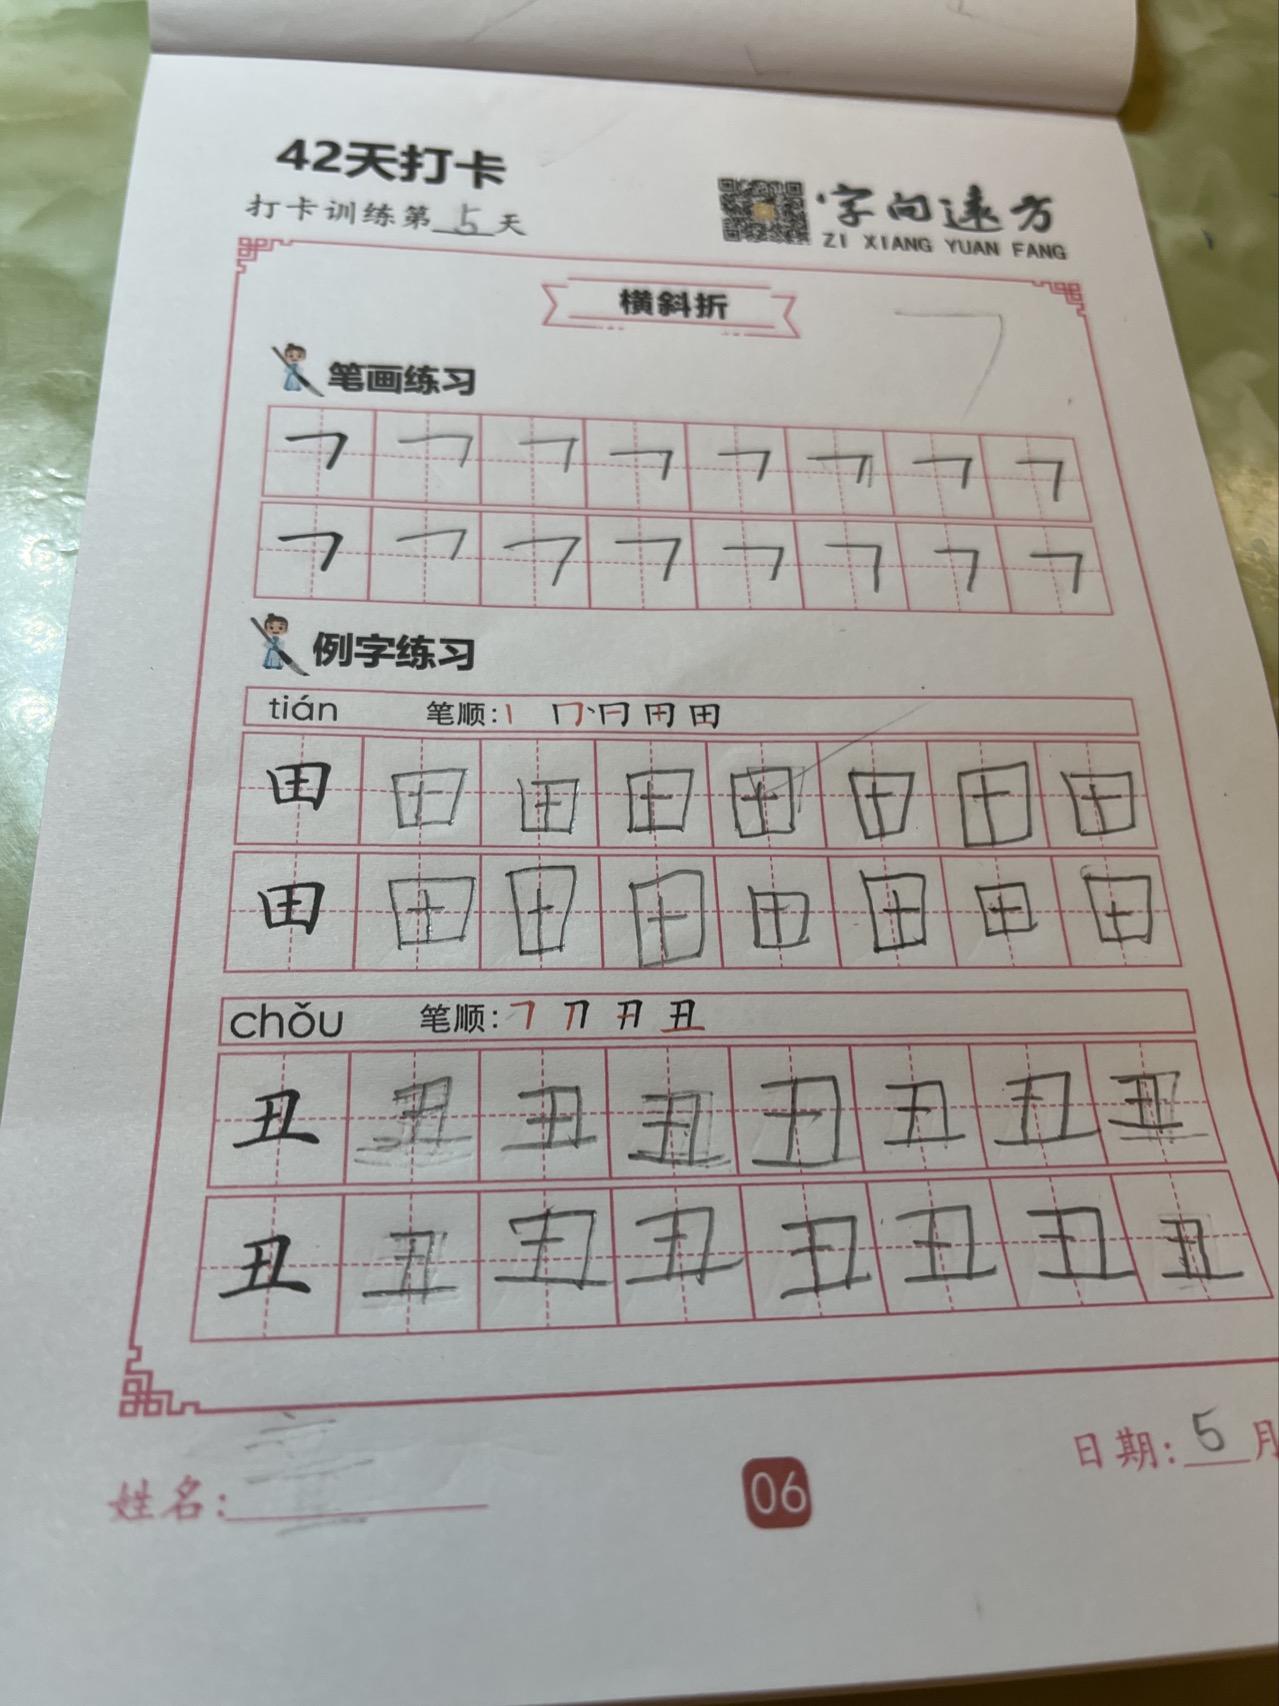 42天打卡
打卡训练第5天
字向远方
ZI XIANG YUAN FANG
横斜折
笔画练习
㇕ ㇕ ㇕ ㇕ ㇕ ㇕ ㇕ ㇕
㇕ ㇕ ㇕ ㇕ ㇕ ㇕ ㇕ ㇕
例字练习
tián 笔顺:
田 田 田 田 田 田 田 田
田 田 田 田 田 田 田 田
chǒu 笔顺:
丑 丑 丑 丑 丑 丑 丑 丑
丑 丑 丑 丑 丑 丑 丑 丑
日期: 5月
姓名:
06